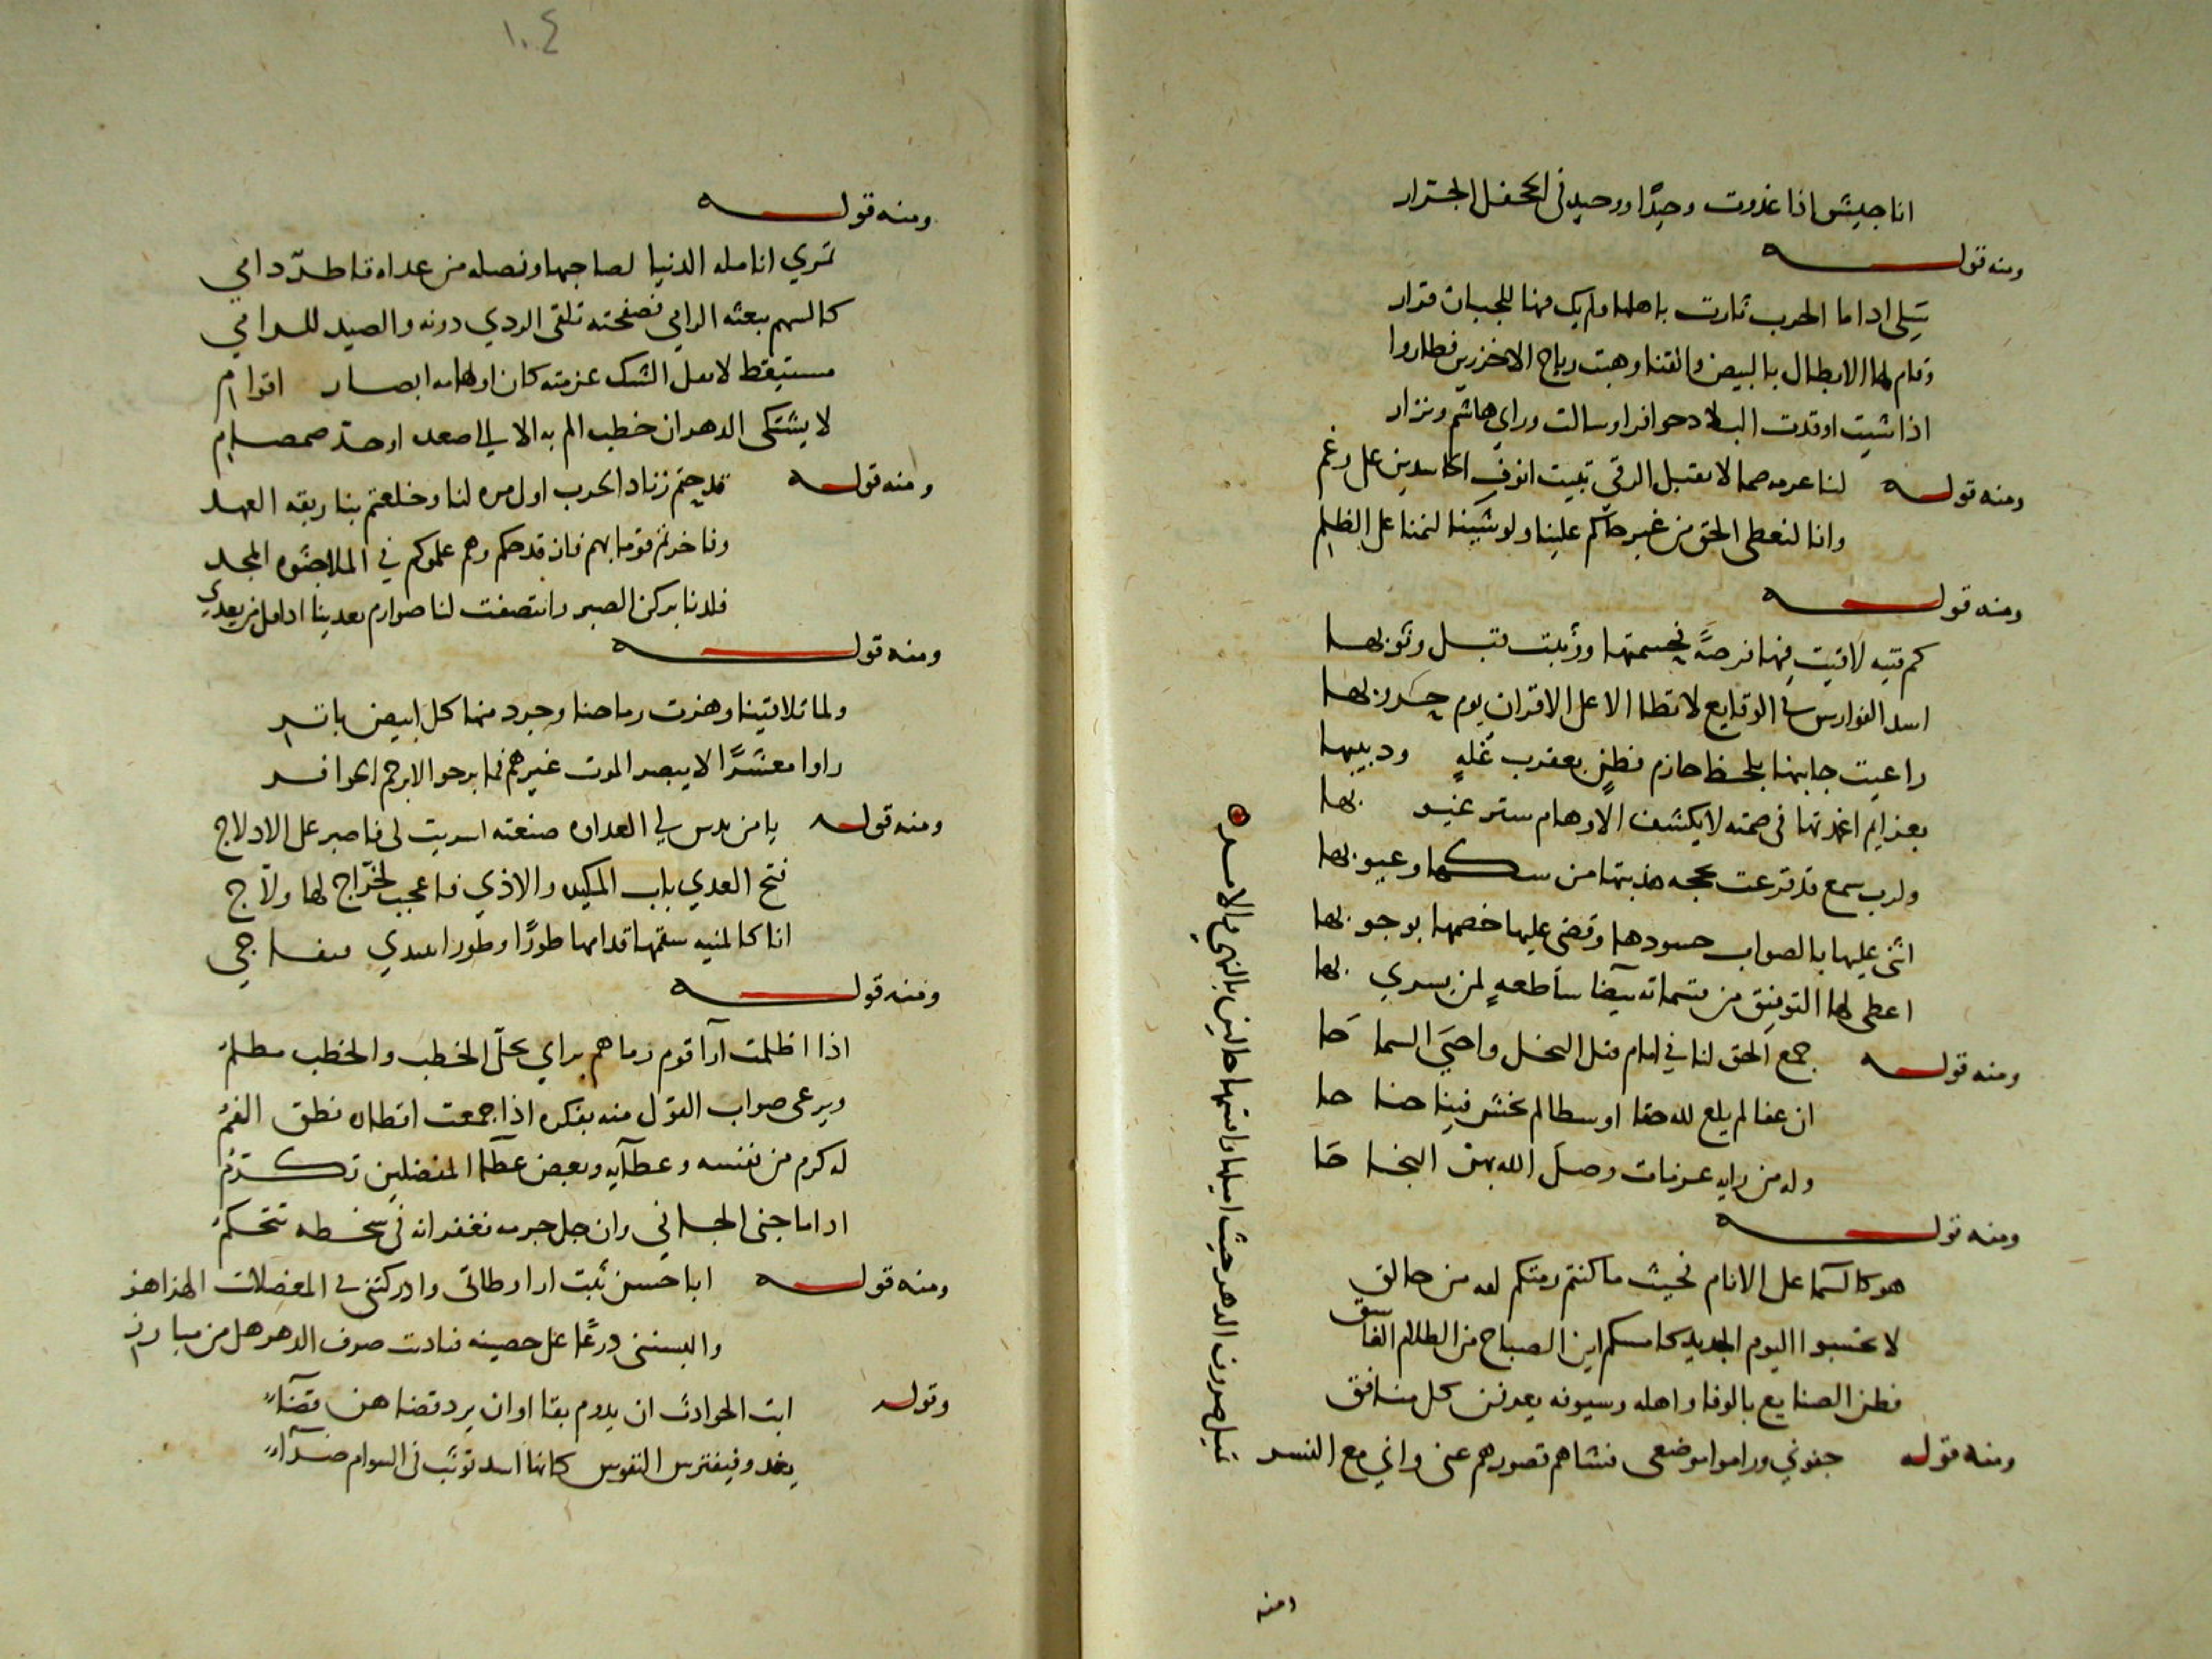 انا جيش اذا غدوت وحيدًا ووحيد فى الجحفل الجرار
ومنه قوله
اذا ما الحرب ثارت باهلها ولم يك فيها للجبان قرار
وقام لها الابطال بالبيض والقنا وهبت رياح الاخزرين فطاروا
اذا شيت اوقدت البلاد حوافرا وسالت وراي هاشم ونزار
ومنه قوله لنا صما لا تقبل الرقى تبيت انوف الحاسدين على رغم
وانا لنعطى الحق من غير حاكم علينا ولو شينا لنمنا على الظلم
ومنه قوله
كم فيها فرصةً وثوبها
اسد الفوارس فى الوقايع لا تطا الا على الاقران يوم حروبها
راعيت جانبها بلحظ حازم فطنٍ بعقرب غله ودبيبها
بعزايم اغمدتها فى صمته لا يكشف الاوهام ستر غيوبها
ولرب سمع قد قرعت بحجه هذبتها من شكها وعيوبها
اثنى عليها بالصواب حسودها وقضى عليها خصمها بوجوبها
اعطى لها التوفيق من قسماته بيضا ساطعهٍ لمن يسري بها
ومنه قوله جمع الحق لنا في امام قتل البخل واحيَى السماحَا
ان عفا لم يلغ لله حقا او سطا لم نخش فينا جناحا
وله من رايه عزمات وصل الله بهن النجاحَا
ومنه قوله
هو كالسما على الانام بحيث ما كنتم من حالق
لا تحسبوا اليوم الجديد كامسكم اين الصباح من الظلام الغاسق
فطن الصنايع بالوفا واهله وسيوفه يعرفن كل منافق
ومنه قوله جفوني وراموا موضعى فثناهم قصورهم عنى واني مع النسر
تميل صروف الدهر حيث اميلها وامتها حالين بالنهي والامر
ومنه
١٠٤
ومنه قوله
تسري انامله الدنيا لصاحبها ونصله من عداه قاطر دامي
كالسهم يبعثه الرامي فصفحته تلقى الردي دونه والصيد للرامي
مستيقظ الشك عزمته كان اوهامه ابصار اقوام
لا يشتكى الدهر ان خطب الم به الا الى صعده او حد صمصام
ومنه قوله قدحتم زناد الحرب اول مره لنا وخلعتم بنا ربقه العهد
وفاخرتم قوما بهم قدحكم وهم علموكم في الملا حَبْوه المجد
فلذنا بركن الصبر وانتصفت لنا صوارم
ومنه قوله
ولما تلاقينا وهزت رماحنا وجرد منها كل ابيض باتر
راوا معشرًا لا يبصر الموت غيرهم فما برحوا الا برجم الحوافر
ومنه قوله يا من يدس لي العداوه صنعته اسريت لى فاصبر على الادلاج
فتح العدي باب المكيده والاذي فاعجب لخرّاج لها ولّاج
انا كالمنيه سقمها قدامها طورًا وطورا تبتدي فتفاجي
ومنه قوله
اذا اظلمت آرآ قوم رماهم براي يحلّ الخطب والخطب مظلم
ويرعى صواب القول منه بفكره اذا جمعت اقطاره نطق الفم
له كرم من نفسه وعطآيه وبعض عطآ المفضلين تكرّم
اذا ما جنى الجاني وان جل جرمه فغفرانه فى سخطه تتحكم
ومنه قوله ابا حسن ثبت وادركتنى فى المعضلات الهزاهز
والبستنى درعًا على حصينه فنادت صرف الدهر هل من مبارز
وقوله ابت الحوادث ان يدوم بقا او ان يرد قضاهن قضآء
يغدو فيفترس النفوس كانها اسد توثب فى السوام ضرآء